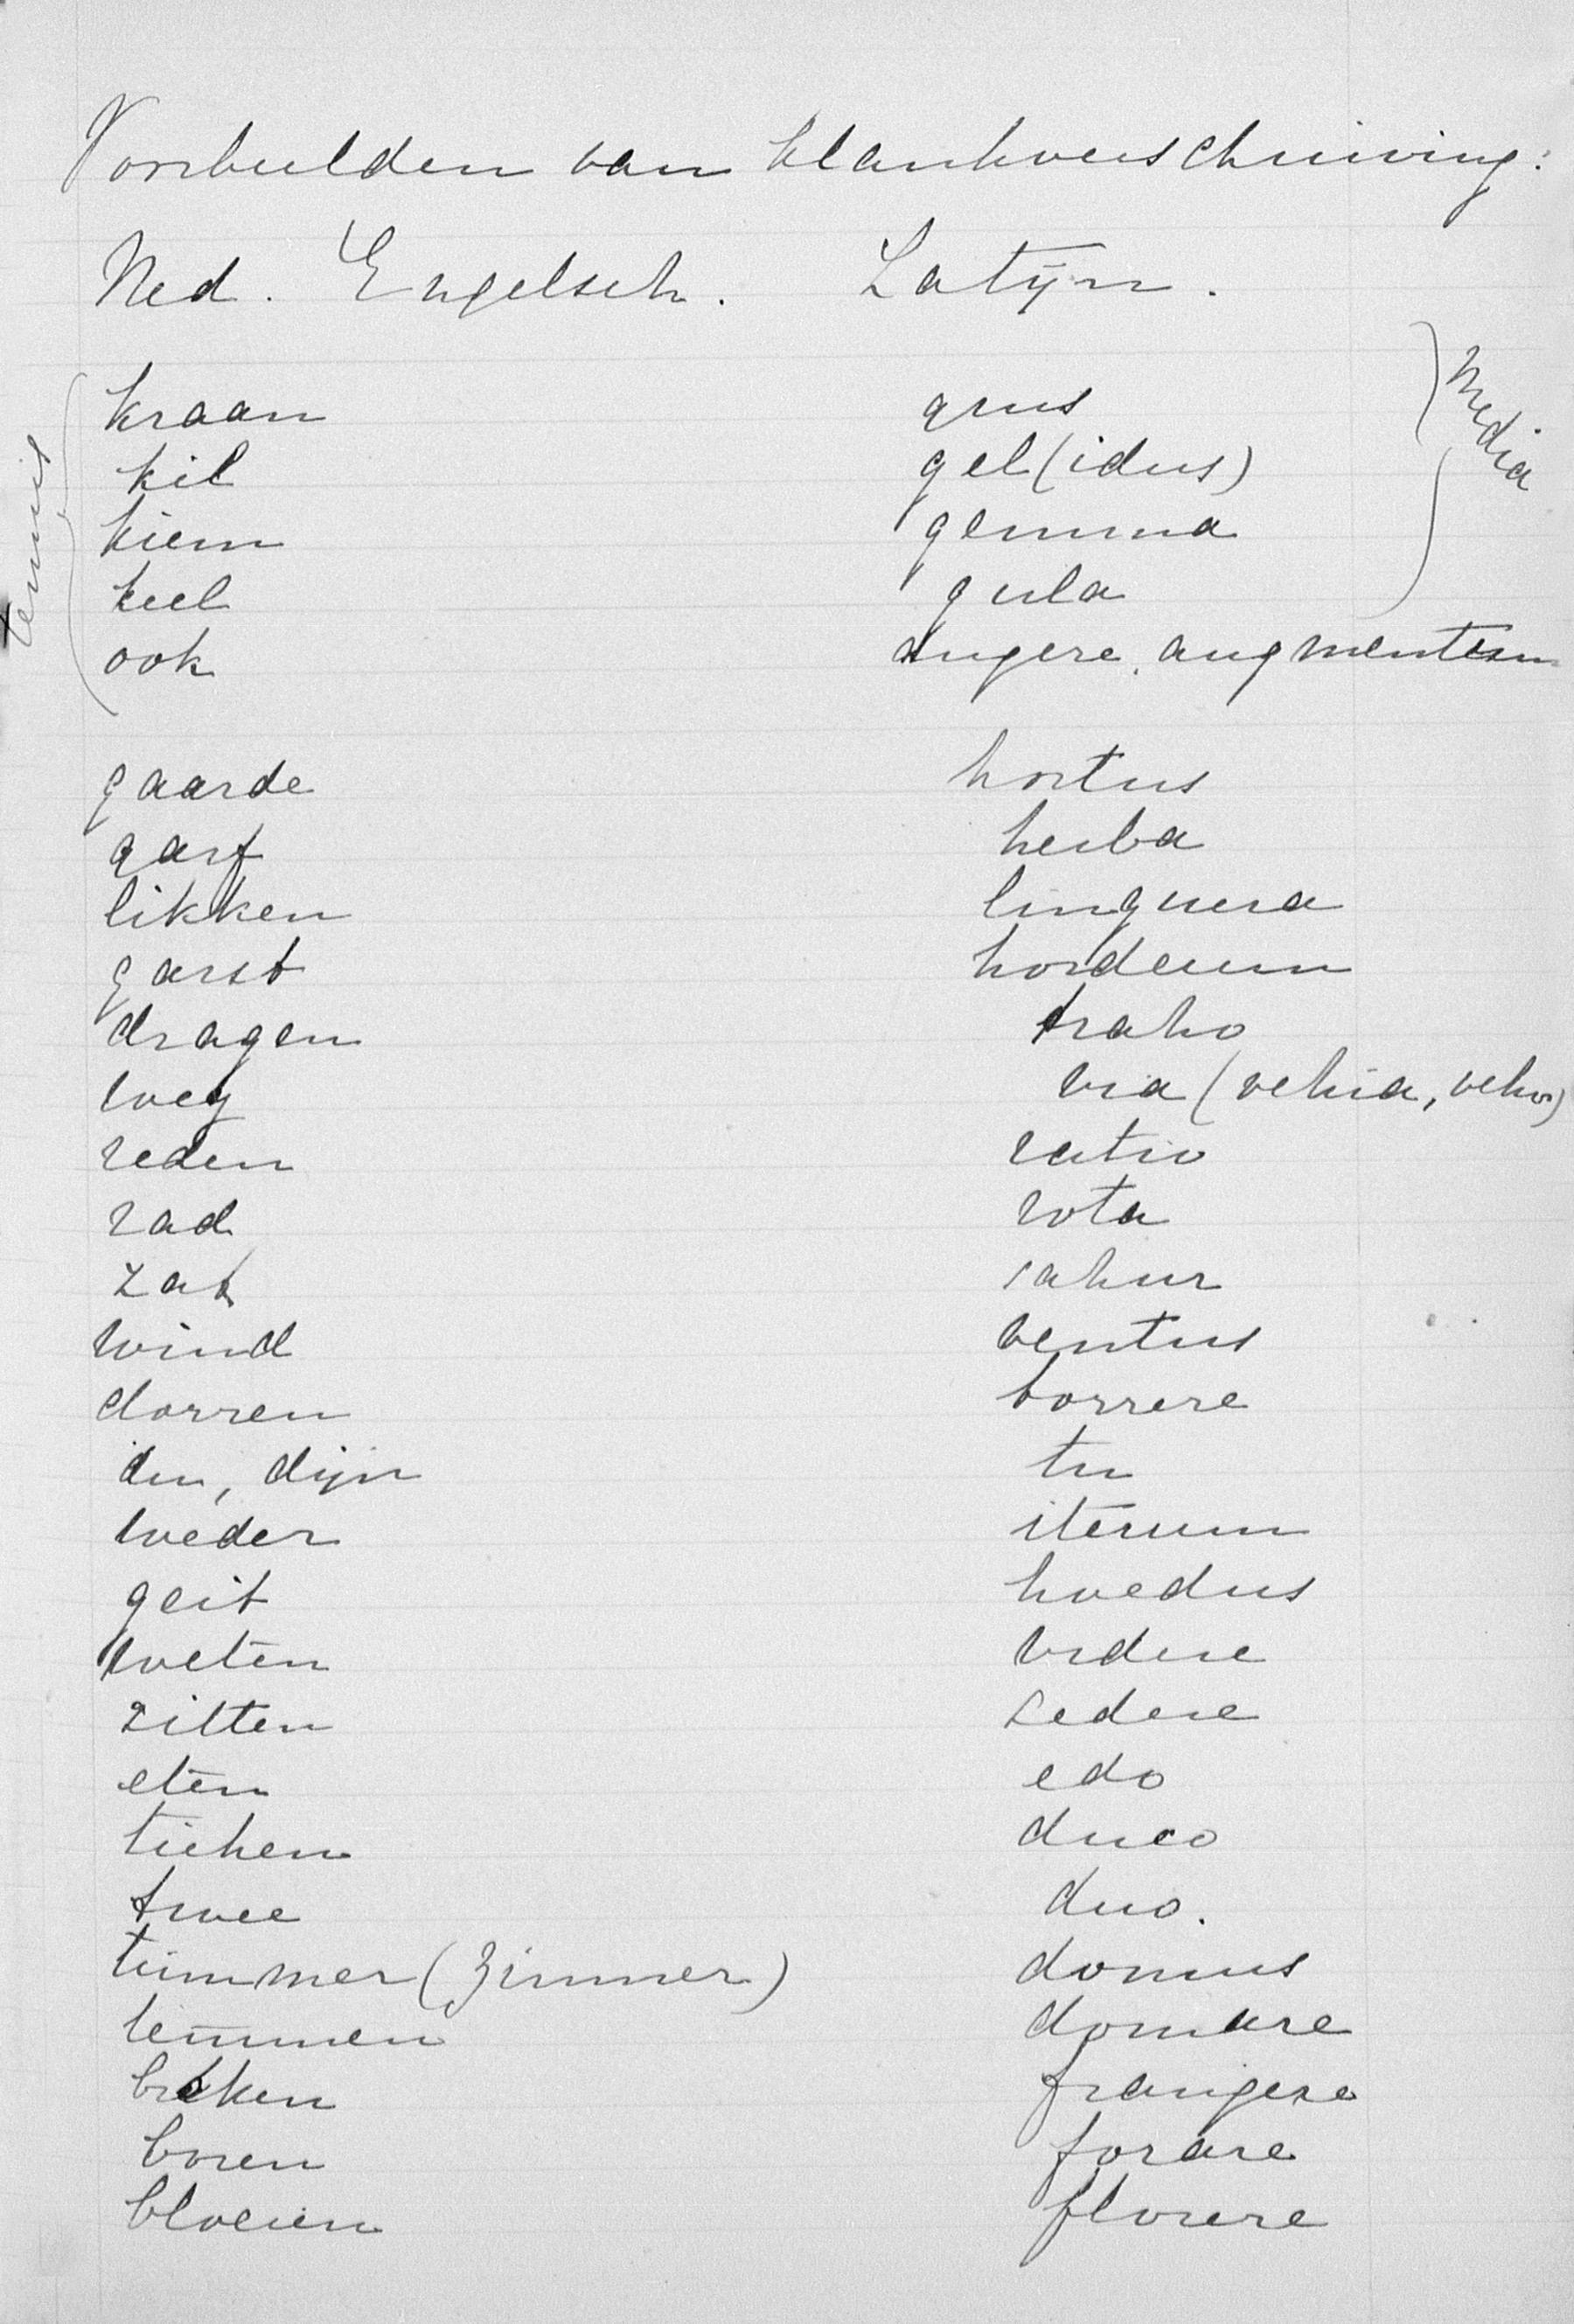 Voorbeelden van klankverschuiving:
Ned. Engelsch. Latijn.
tenuis
Media
kraan grus
kil gel(idus)
kiem gemma
keel gula
ook augere, augmentum
gaarde hortus
garf herba
likken linguera
garst hordeum
dragen traho
weg via (vehia, veho)
reden ratio
rad rota
zat satur
wind ventus
dorren torrere
du, dijn tu
weder iterum
geit hoedus
weten videre
zitten sedere
eten edo
tiehen duco
twee duo.
timmer (Zimmer) domus
temmen domare
breken frangere
boren forare
bloeien florere